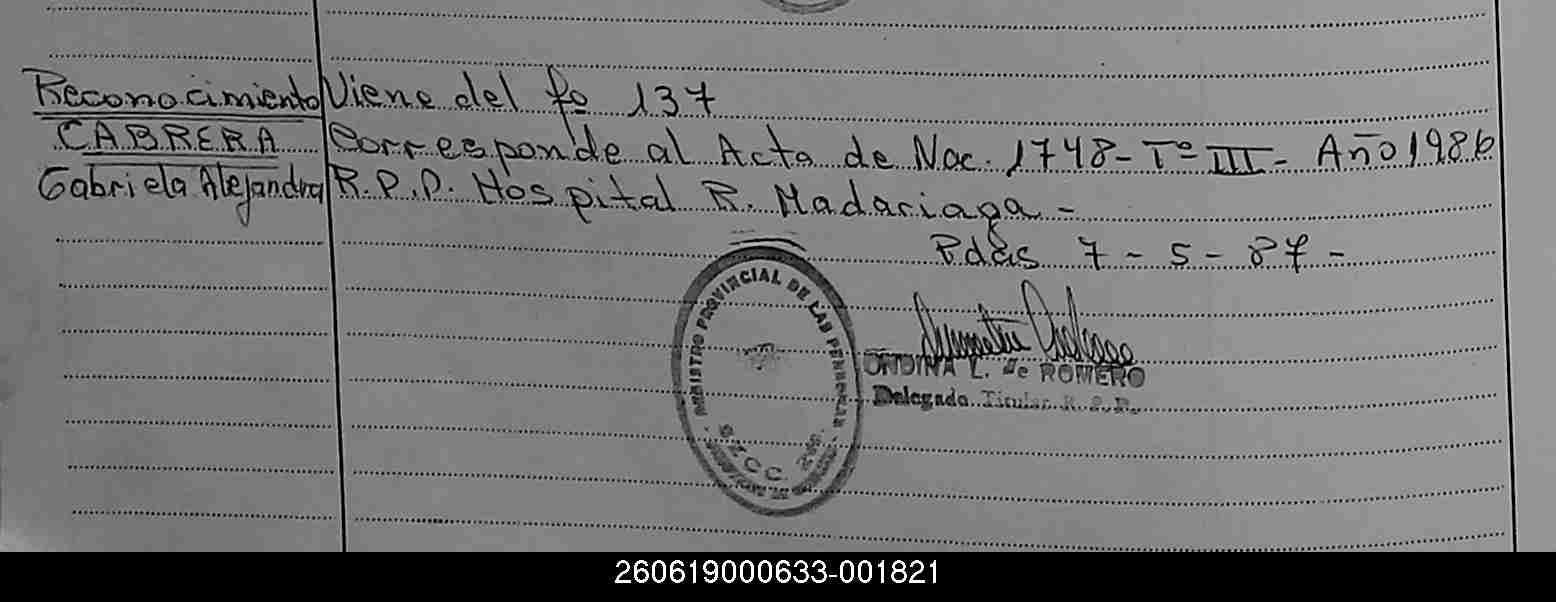 Reconocimiento Viene del fo 137
CABRERA Corresponde al Acta de Nac. 1748 - Tº III - Año 1986
Gabriela Alejandra R.P.P. Hospital R. Madariaga -
Pdas 7 - 5 - 87 -
REGISTRO PROVINCIAL DE LAS PERSONAS
SECC.
ONDINA L. de ROMERO
Delegada Titular R.P.P.
260619000633-001821